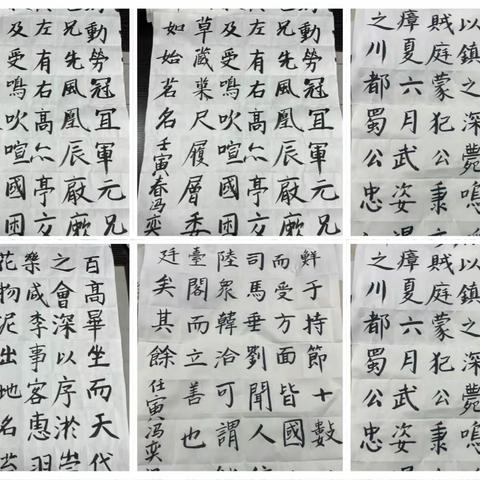 動勞冠宜軍元兄
兄先風凰辰廠
左有右高亭
及受鳴吹喧國困
動勞冠宜軍元兄
兄先風凰辰廠
左有右高亭
及受鳴吹喧國困
草藏巢尺履層委
如始茗名
壬寅春冯奕
以鎮之深薨鳴
賊庭蒙犯公秉
瘴夏六月武姿
之川都蜀公忠
百高畢坐而天代
之會深以序淤崇
樂咸李事客惠羽
花物泥出地名苔
鮮于持節十數
而受方面皆國
司馬垂劉聞人
陸衆韓洽可謂
臺閣而立善也
廷矣其餘
任寅冯奕
以鎮之深薨鳴
賊庭蒙犯公秉
瘴夏六月武姿
之川都蜀公忠